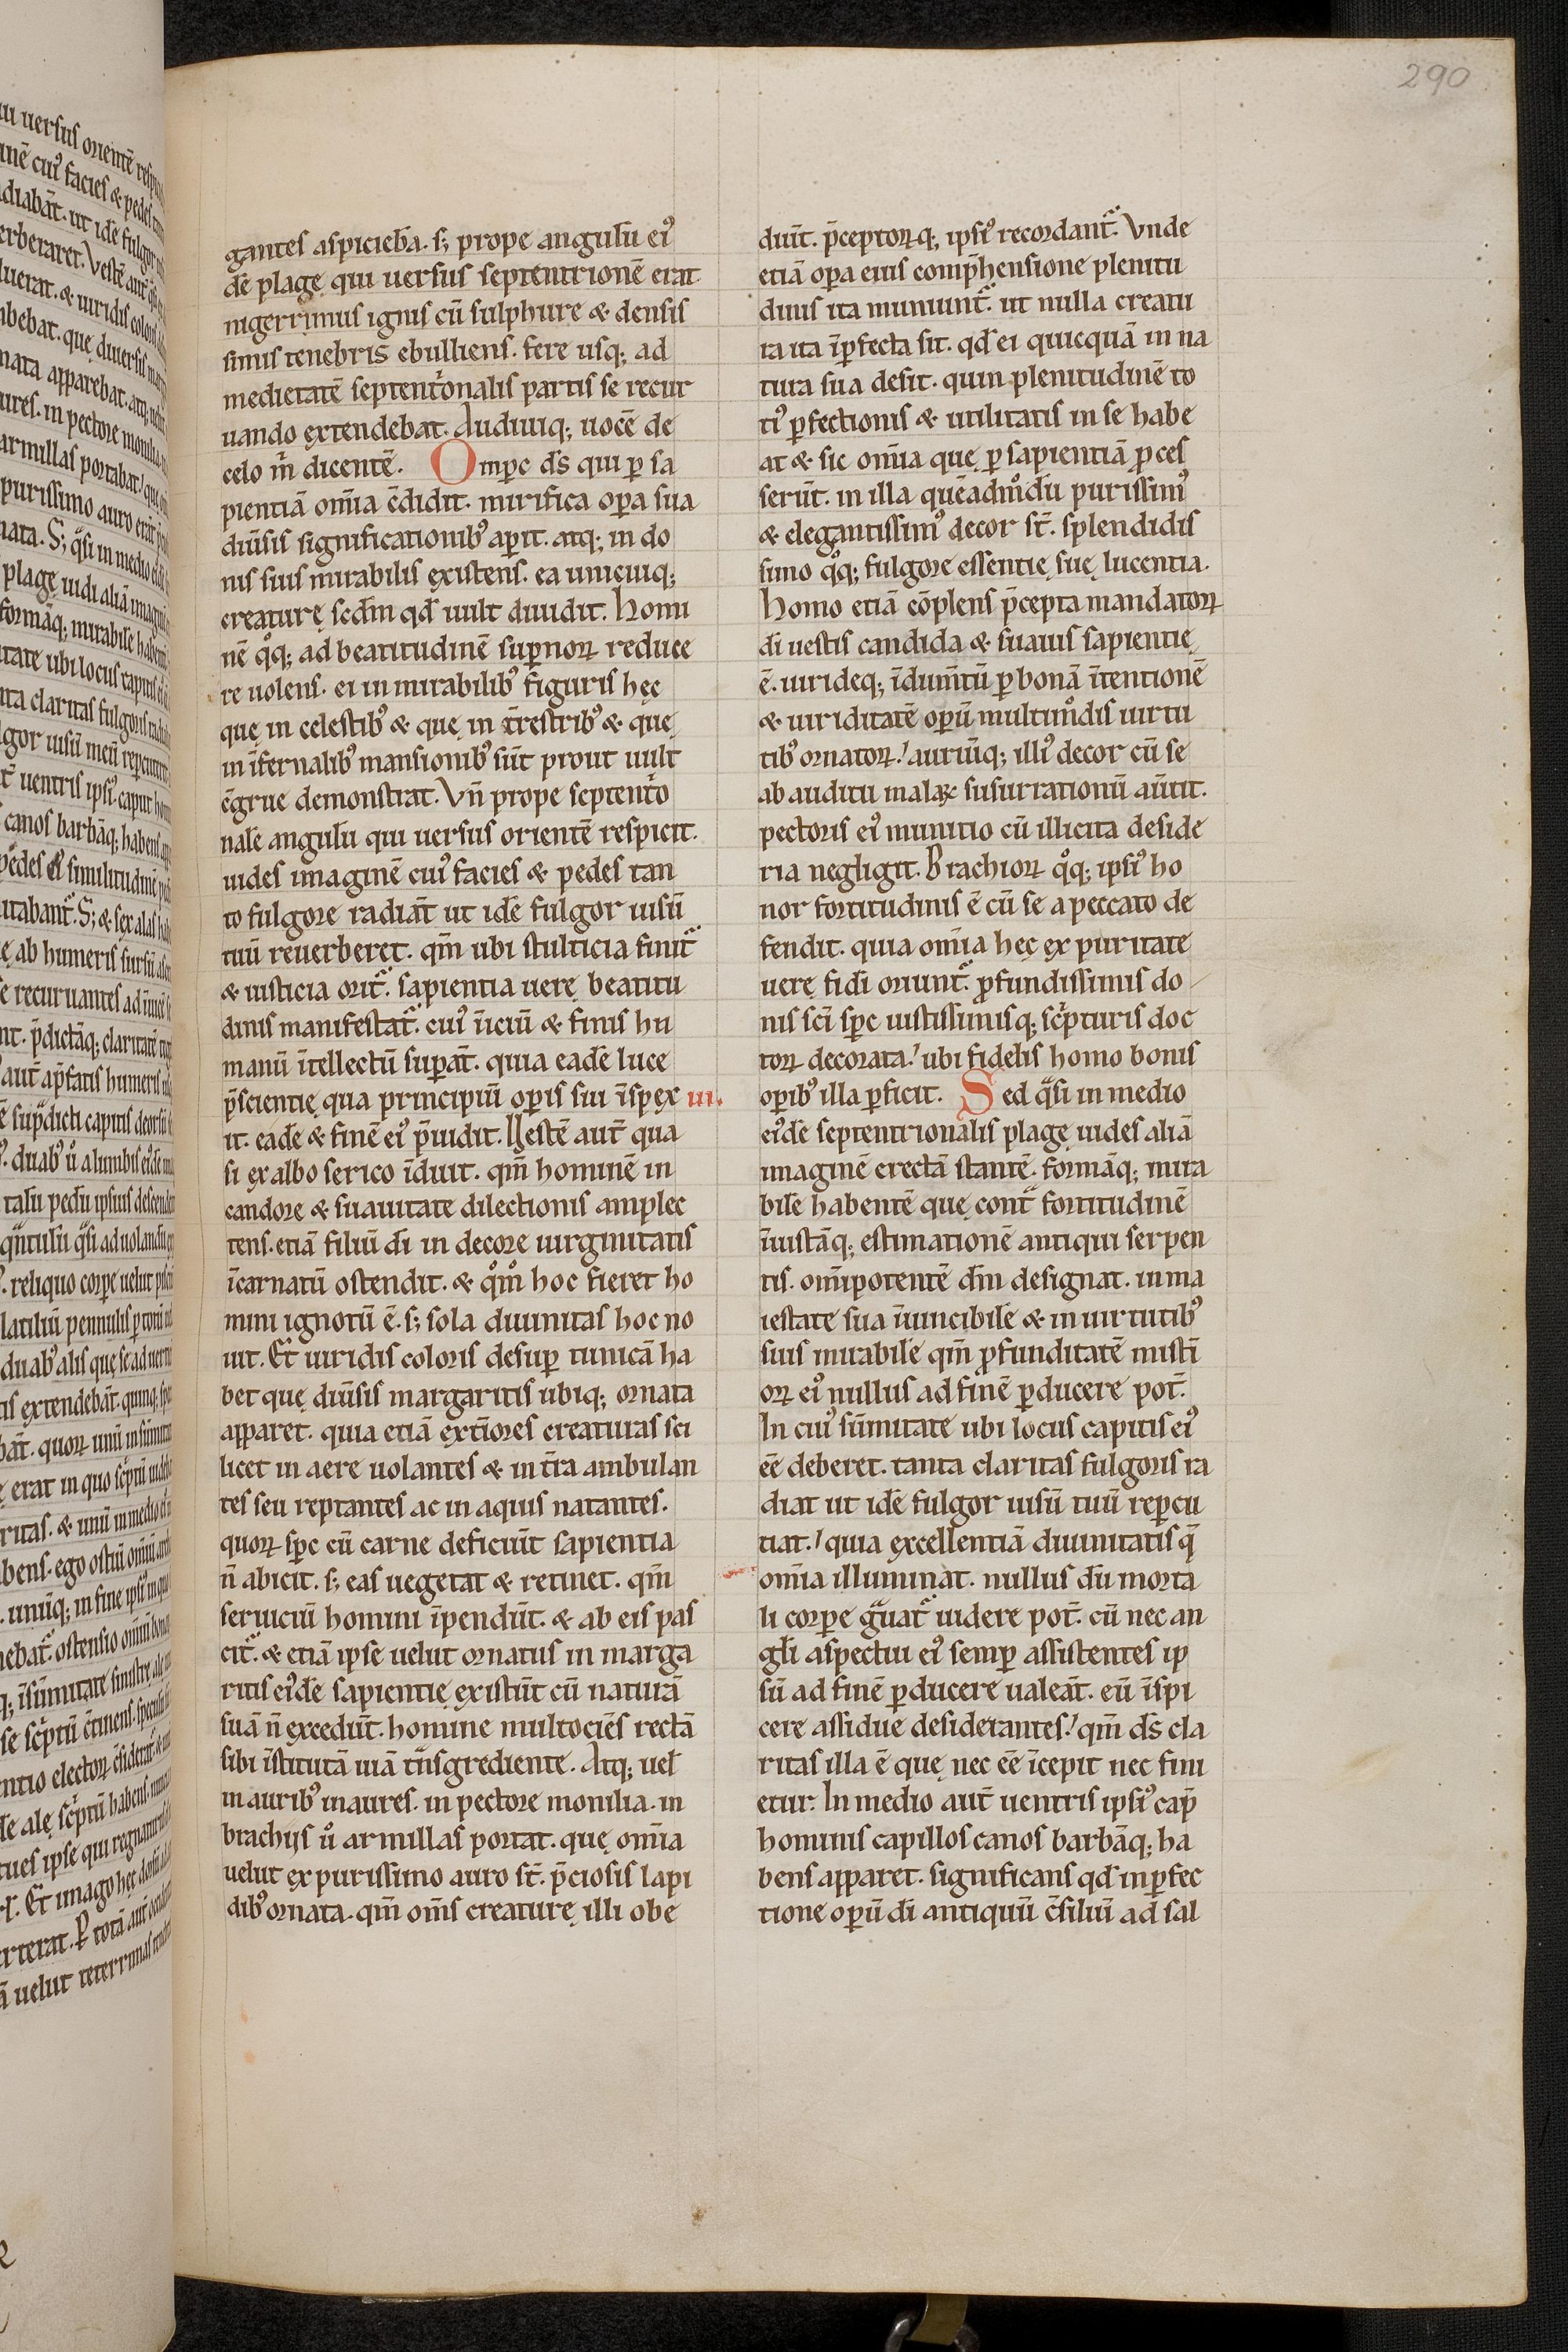 290
gantes aspicieb̄a. s; prope angulū ei᷒
dē plagę qui uersus septentrionē erat
nigerrimus ignis cū sulphure & densis
simis tenebris ebulliens. fere usq; ad
medietatē septent̓onalis partis se recur
uando extendebat. Audiuiq; uocē de
celo m̄ dicentē. Omp̄c d̄s qui ꝑ sa
pientiā om̄ia ↄ̄didit. mirifica oꝑa sua
diūsis significationib᷒ aꝑit. atq; in do
nis suis mirabilis existens. ea unicuiq;
creaturę scd̄m qđ uult diuidit. Homi
nē q̊q; ad beatitudinē suꝑnoꝝ reduce
re uolens. ei in mirabilib᷒ figuris hęc
quę in celestib᷒ & quę in t̄restrib᷒ & quę
in īfernalib᷒ mansionib᷒ sūt prout uult
c̄grue demonstrat. Vn̄ prope septent̓o
nalē angulū qui uersus orientē respicit.
uides imaginē cui᷒ facies & pedes tan
to fulgore radiāt ut idē fulgor uisū
tuū reuerberet. qm̄ ubi stulticia finit᷑
& iusticia orit᷑. sapientia uerę beatitu
dinis manifestat᷑. cui᷒ īiciū & finis hu
manū ītellectū suꝑat. quia eadē luce
p̄scientię qua principiū oꝑis sui īspex ui.
it. eadē & finē ei᷒ p̄uidit. Uestē aut̄ qua
si ex albo serico īduit. qm̄ hominē in
candore & suauitate dilectionis amplec
tens. etiā filiū dī in decore uirginitatis
īcarnatū ostendit. & q̊m̊ hoc fieret ho
mini ignotū ē. s; sola diuinitas hoc no
uit. Et uiridis coloris desuꝑ tunicā ha
bet quę diūsis margaritis ubiq; ornata
apparet. quia etiā ext̄iores creaturas sci
licet in aere uolantes & in t̄ra ambulan
tes seu reptantes ac in aquis natantes.
quoꝝ sp̄c cū carne deficiūt sapientia
n̄ abicit. s; eas uegetat & retinet. qm̄
seruiciū homini īpendūt. & ab eis pas
cit᷑. & etiā ipse uelut ornatus in marga
ritis ei᷒dē sapientię existūt cū naturā
suā n̄ excedūt. homine multociēs rectā
sibi īstitutā uiā tn̄sgrediente. Atq; uel̄
in aurib᷒ inaures. in pectore monilia. in
brachijs ů armillas portat. quę om̄ia
uelut ex purissimo auro st̄. p̄ciosis lapi
dib᷒ ornata. qm̄ om̄s creaturę illi obe
diūt. p̄ceptoꝝq; ipsi᷒ recordant᷑. Vnde
etiā oꝑa eius comp̄hensione plenitu
dinis ita muniunt᷑. ut nulla creatu
ra ita īꝑfecta sit. qđ ei quicquā in na
tura sua desit. quin plenitudinē to
ti᷒ ꝑfectionis & utilitatis in se habe
at & sic om̄ia quę ꝑ sapientiā ꝓces
serūt. in illa quēadm̊dū purissim᷒
& elegantissim᷒ decor st̄. splendidis
simo q̊q; fulgore essentię suę lucentia.
Homo etiā cōplens p̄cepta mandatoꝝ
dī uestis candida & suauis sapientię
ē. uirideq; īdumtū ꝑ bonā ītentionē
& uiriditatē oꝑū multim̊dis uirtu
tib᷒ ornatoꝝ! auriūq; illi᷒ decor cū se
ab auditu malaꝝ susurrationū aūtit.
pectoris ei᷒ munitio cū illicita deside
ria negligit. Brachioꝝ q̊q; ipsi᷒ ho
nor fortitudinis ē cū se a peccato de
fendit. quia om̄ia hęc ex puritate
uerę fidi oriunt᷑. ꝓfundissimis do
nis sc̄i sp̄c iustissimisq; sc̓pturis doc
toꝝ decorata! ubi fidelis homo bonis
oꝑib᷒ illa ꝑficit. Sed q̈si in medio
ei᷒dē septentrionalis plagę uides aliā
imaginē erectā stantē. formāq; mira
bilē habentē quę cont᷑ fortitudinē
īiustāq; estimationē antiqui serpen
tis. om̄ipotentē dm̄ designat. in ma
iestate sua īuincibilē & in uirtutib᷒
suis mirabilē qm̄ ꝓfunditatē mist̄i
oꝝ ei᷒ nullus ad finē ꝑducere pot̄.
In cui᷒ sūmitate ubi locus capitis ei᷒
eē deberet. tanta claritas fulgoris ra
diat ut idē fulgor uisū tuū reꝑcu
tiat! quia excellentiā diuinitatis q̄
om̄ia illuminat. nullus dū morta
li corꝑe g̈uat᷑ uidere pot̄. cū nec an
gl̄i aspectui ei᷒ semꝑ assistentes ip
sū ad finē ꝑducere ualeāt. eū īspi
cere assidue desiderantes! qm̄ d̄s cla
ritas illa ē quę nec eē īcepit nec fini
etur. In medio aut̄ uentris ipsi᷒ cap̄
hominis capillos canos barbāq; ha
bens apparet. significans qđ in ꝑfec
tione oꝑū dī antiquū c̄siliū ad sal